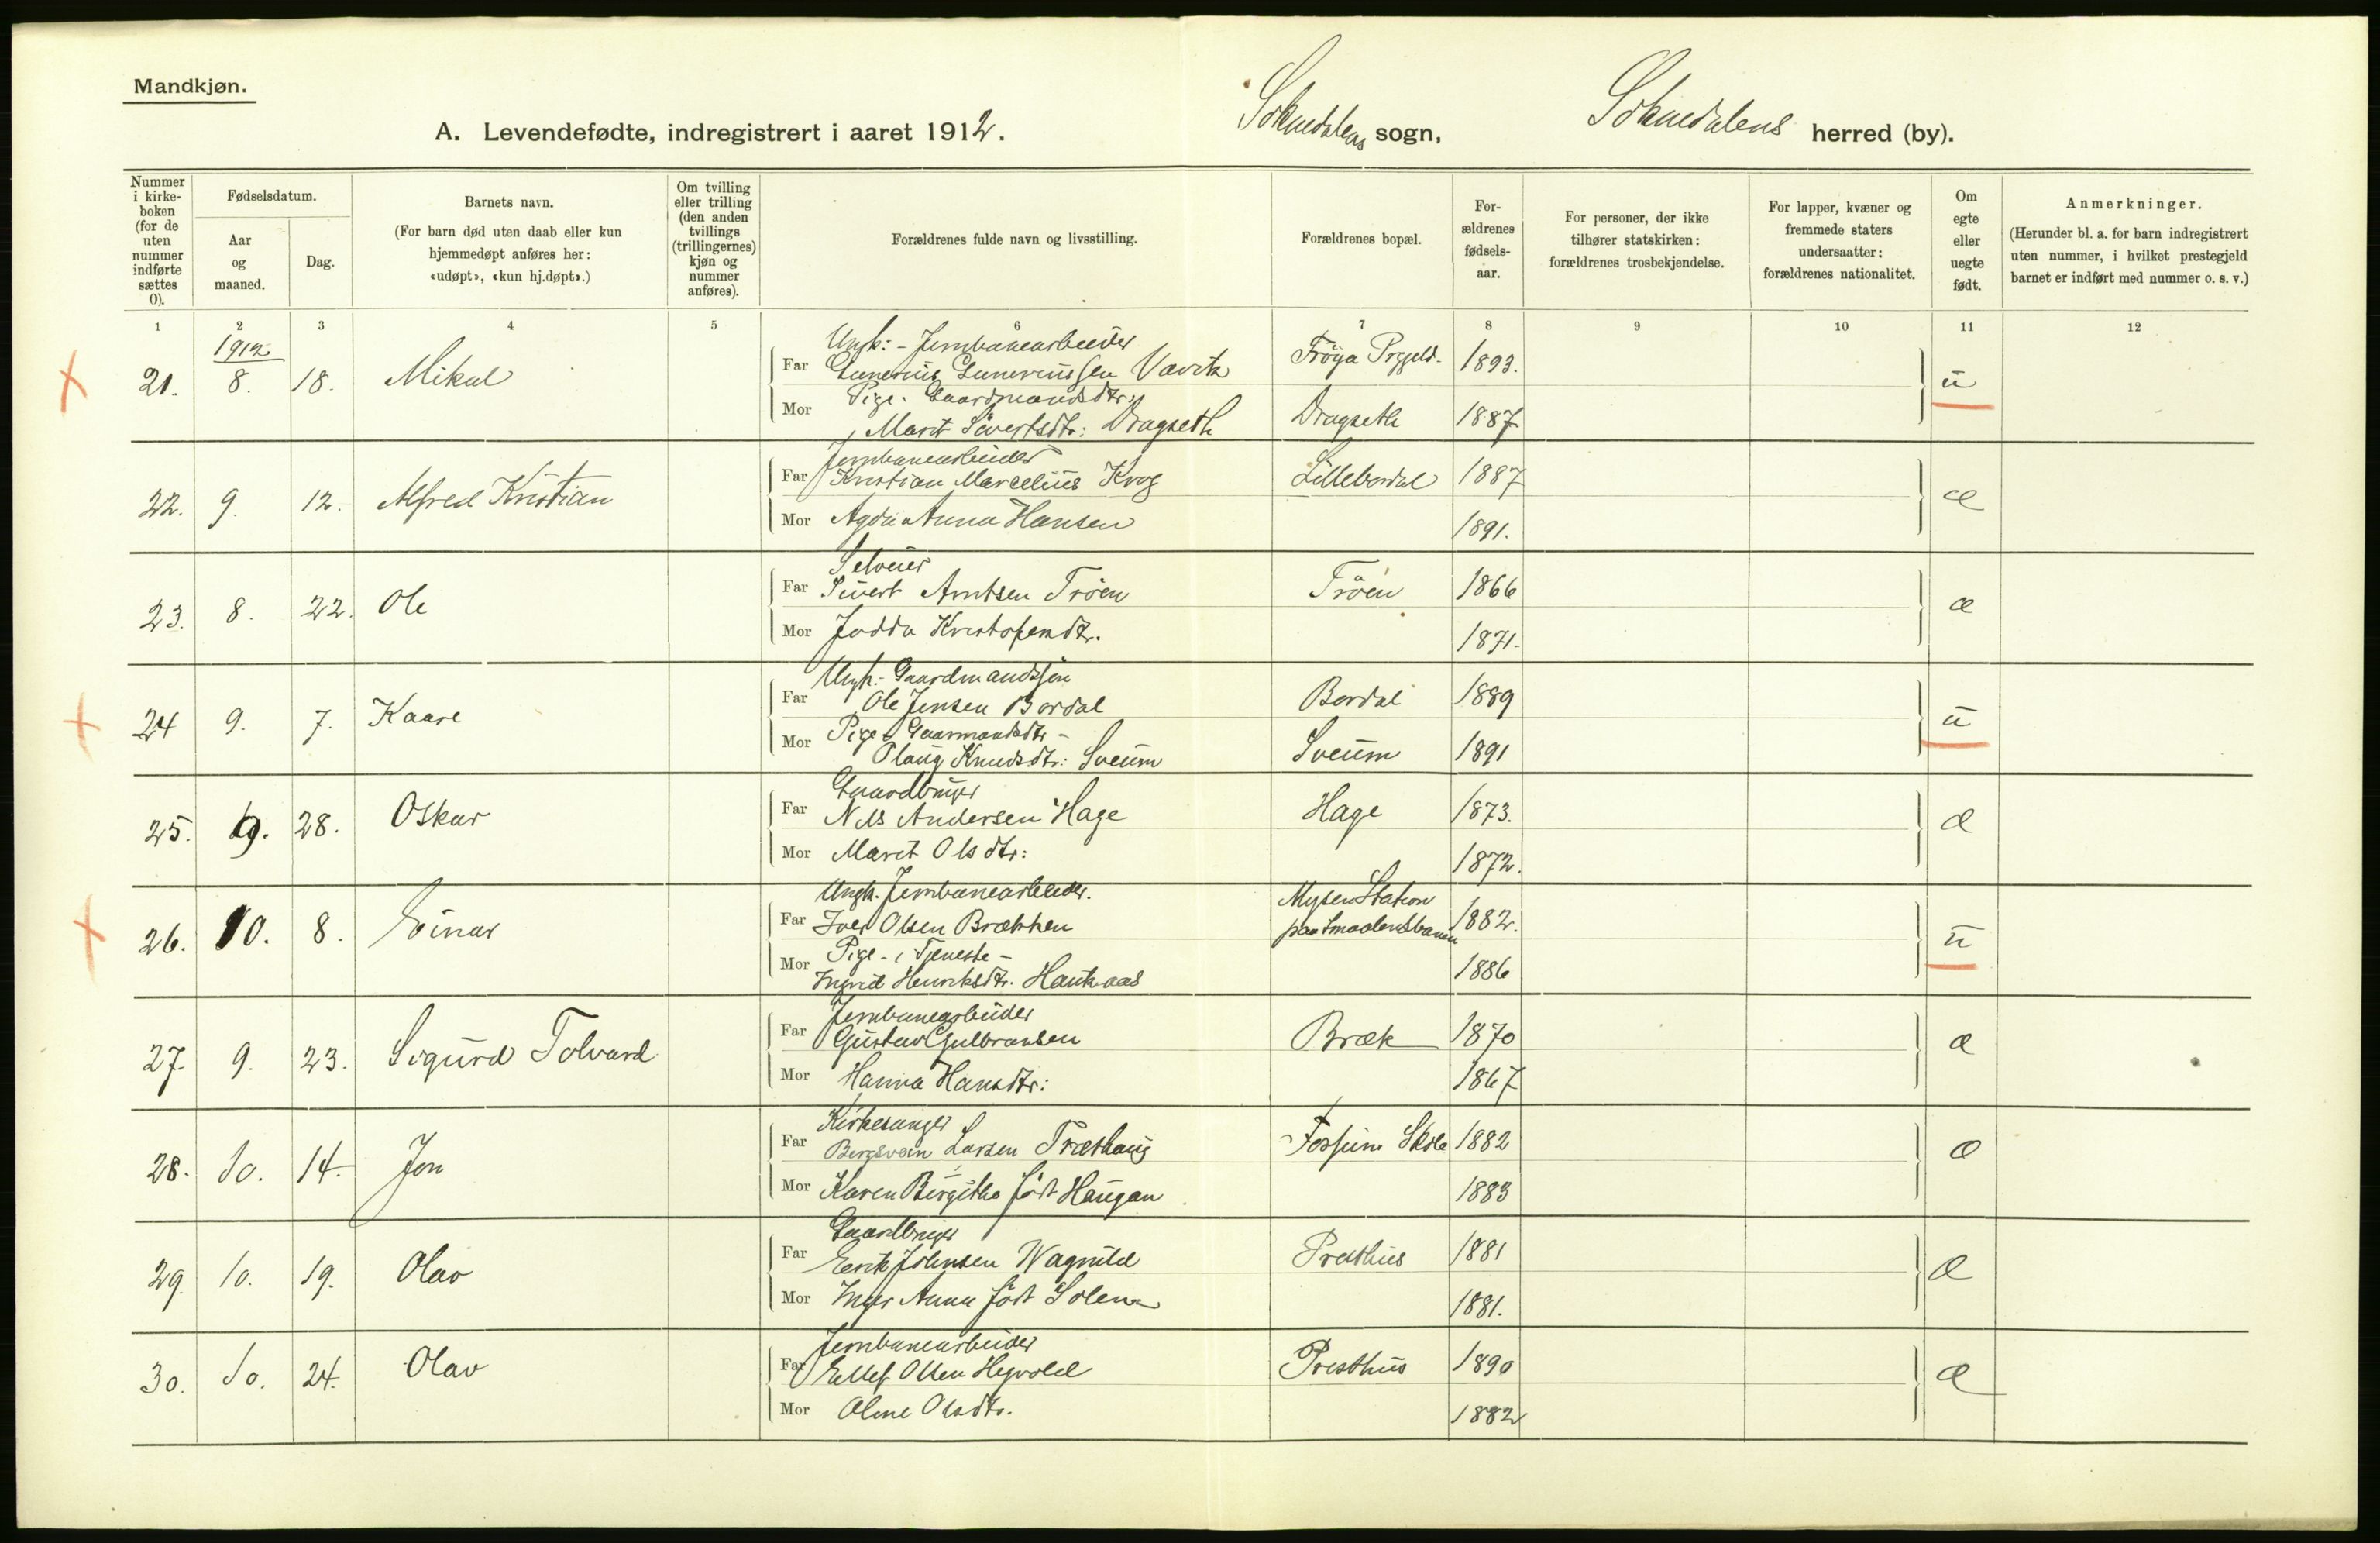 Mandkjøn.
A. Levendefødte, indregistrert i aaret 1912. Soknedalens sogn, Soknedalens herred (by).
Nummer i kirkeboken (for de uten nummer indførte sættes 0).
Fødselsdatum.
Aar og maaned.
Dag.
Barnets navn.
(For barn død uten daab eller kun hjemmedøpt anføres her: «udøpt», «kun hj.døpt».)
Om tvilling eller trilling (den anden tvillings (trillingernes) kjøn og nummer anføres).
Forældrenes fulde navn og livsstilling.
Forældrenes bopæl.
Forældrenes fødselsaar.
For personer, der ikke tilhører statskirken: forældrenes trosbekjendelse.
For lapper, kvæner og fremmede staters undersaatter: forældrenes nationalitet.
Om egte eller uegte født.
Anmerkninger.
(Herunder bl. a. for barn indregistrert uten nummer, i hvilket prestegjeld barnet er indført med nummer o. s. v.)
1 2 3 4 5 6 7 8 9 10 11 12
1912
21. 8. 18. Mikal
Ungk: - Jernbanearbeider
Far Gunerius Guneriussen Vavik Frøya Prgjeld. 1893. u
Pige. Gaardmandsdtr.
Mor Marit Sivertsdtr: Dragseth Dragseth 1887
22. 9. 12. Alfred Kristian
Jernbanearbeider
Far Kristian Marcelius Krog Lillebordal 1887 æ
Mor Agda Anna Hansen 1891.
23. 8. 22. Ole
Selveier
Far Sivert Arntsen Trøen Trøen 1866 æ
Mor Jodda Kristofersdtr. 1871.
24 9. 7. Kaare
Ungk: - Gaardmandssøn
Far Ole Jensen Bordal Bordal 1889 u
Pige - Gaarmandsdtr -
Mor Olaug Knudsdtr: Sveum Sveum 1891
25. 9. 28. Oskar
Gaardbruger
Far Nils Andersen Hage Hage 1873. æ
Mor Marit Olsdtr: 1872.
26. 10. 8. Einar
Ungk. Jernbanearbeider. Mysen Station
Far Iver Olsen Brækken paa Smaalensbanen 1882. u
Pige - i Tjeneste -
Mor Ingrid Henriksdtr. Haukaas 1886
27 9. 23. Sigurd Tolvard
Jernbanearbeider
Far Gustav Gulbransen Bræk 1870 æ
Mor Hanna Hansdtr: 1867
28. 10. 14. Jon
Kirkesanger
Far Bergsvein Larsen Træthaug Fossum Skole 1882 æ
Mor Karen Birgitha født Haugan 1883
29. 10. 19. Olav
Gaardbruger
Far Eerik Johnsen Wagnild Præsthus 1881 æ
Mor Inger Anna født Solem 1881.
30. 10. 24. Olav
Jernbanearbeider
Far Ellef Olsen Hegvold Presthus 1890 æ
Mor Oline Olsdtr. 1882